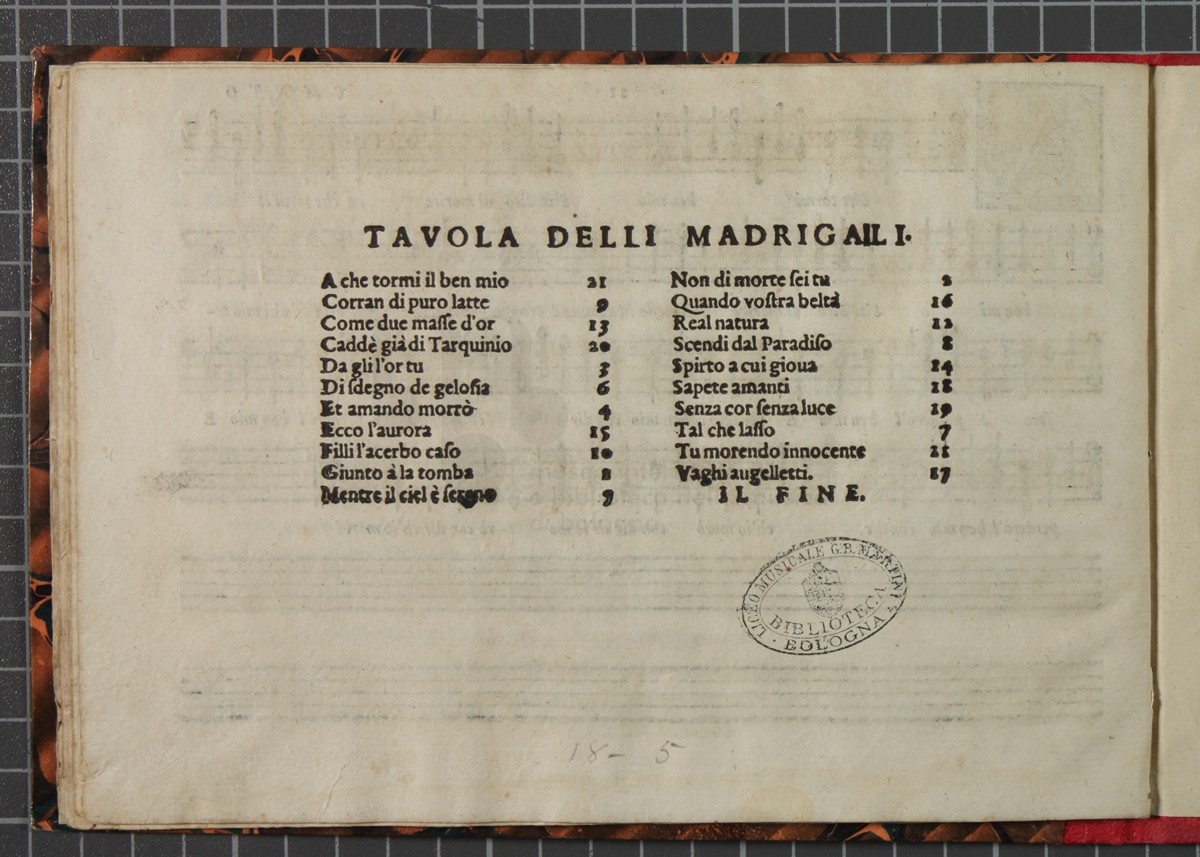 TAVOLA DELLI MADRIGALLI.
A che tormi il ben mio 21
Corran di puro latte 9
Come due masse d'or 13
Caddè già di Tarquinio 20
Da gli l'or tu 3
Di sdegno de gelosia 6
Et amando morrò 4
Ecco l'aurora 15
Filli l'acerbo caso 10
Giunto à la tomba 1
Mentre il ciel è sereno 5
Non di morte sei tu 2
Quando vostra beltà 16
Real natura 12
Scendi dal Paradiso 8
Spirto a cui gioua 14
Sapete amanti 18
Senza cor senza luce 19
Tal che lasso 7
Tu morendo innocente 11
Vaghi augelletti. 17
IL FINE.
LICEO MUSICALE G.B. MARTINI
BIBLIOTECA
BOLOGNA
18- 5